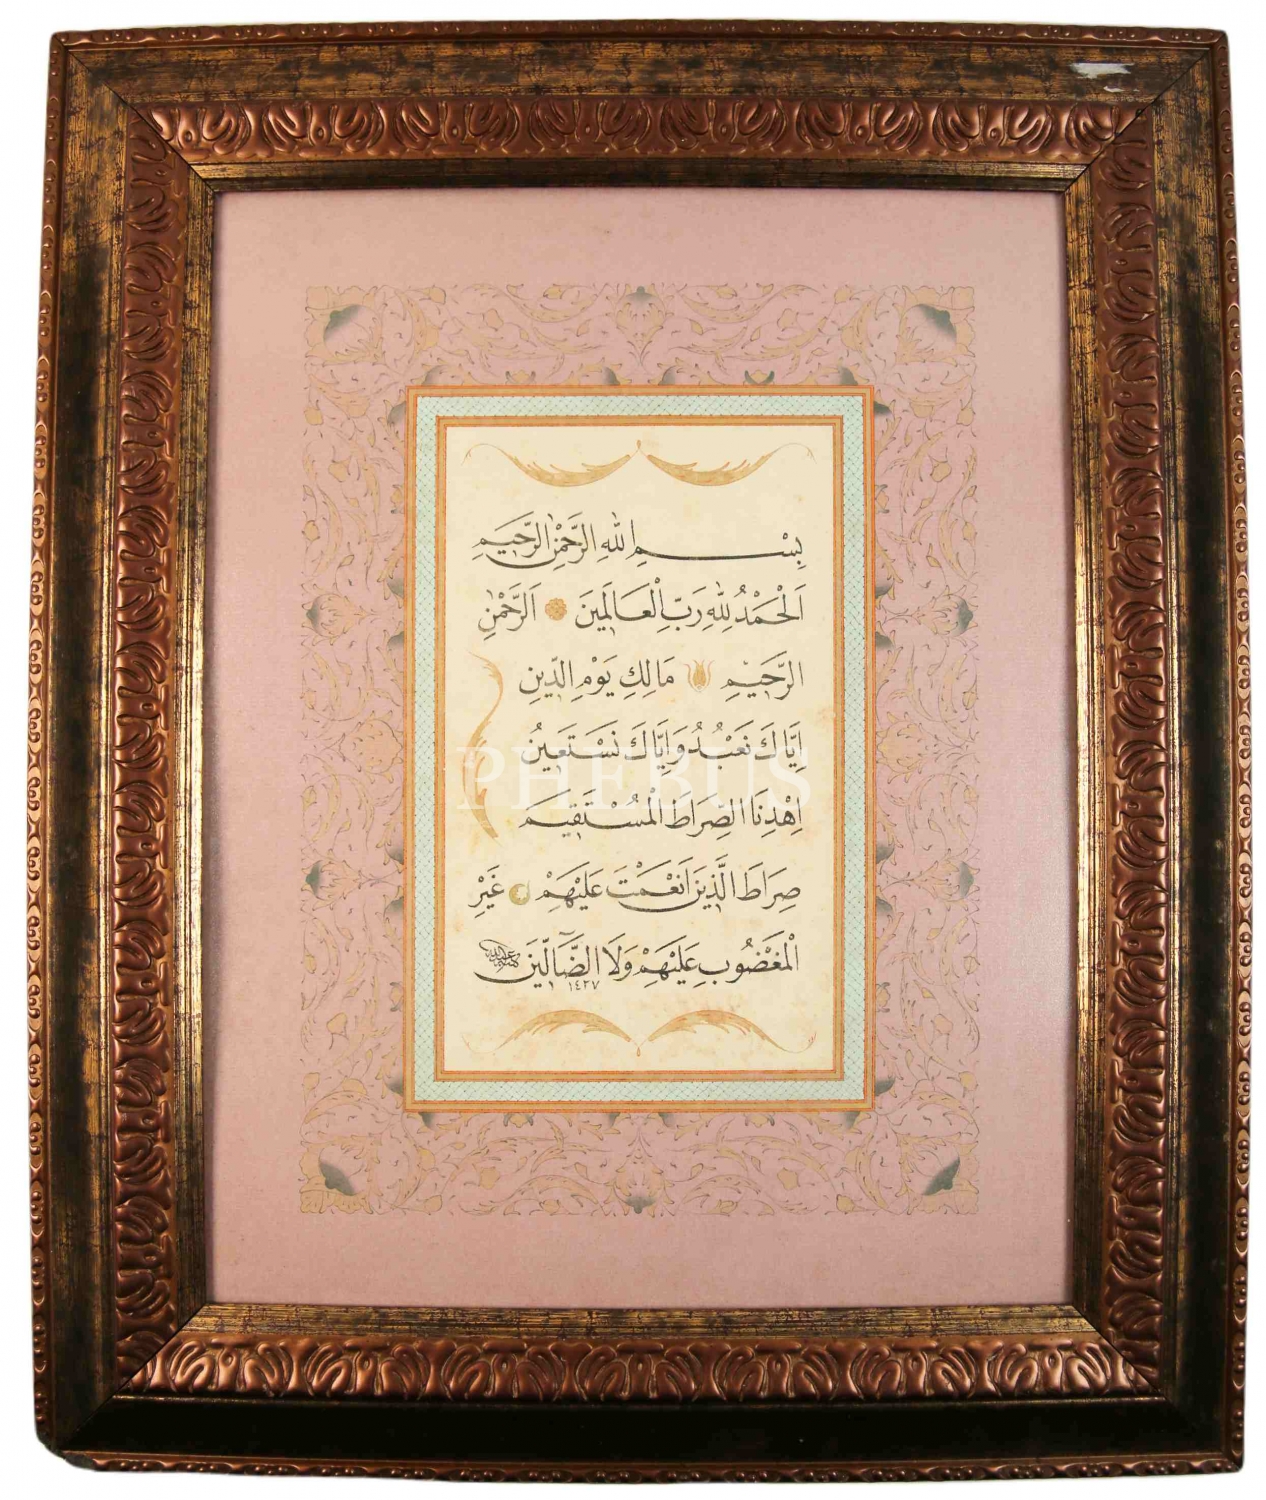 بِسْمِ اللهِ الرَّحْمٰنِ الرَّحِيمِ
اَلْحَمْدُ لِلّٰهِ رَبِّ الْعَالَمِينَ اَلرَّحْمٰنِ
الرَّحِيمِ مَالِكِ يَوْمِ الدِّينِ
اِيَّاكَ نَعْبُدُ وَاِيَّاكَ نَسْتَعِينُ
PHEBUS
اِهْدِنَا الصِّرَاطَ الْمُسْتَقِيمَ
صِرَاطَ الَّذِينَ اَنْعَمْتَ عَلَيْهِمْ غَيْرِ
الْمَغْضُوبِ عَلَيْهِمْ وَلَا الضَّآلِّينَ
١٤٢٧